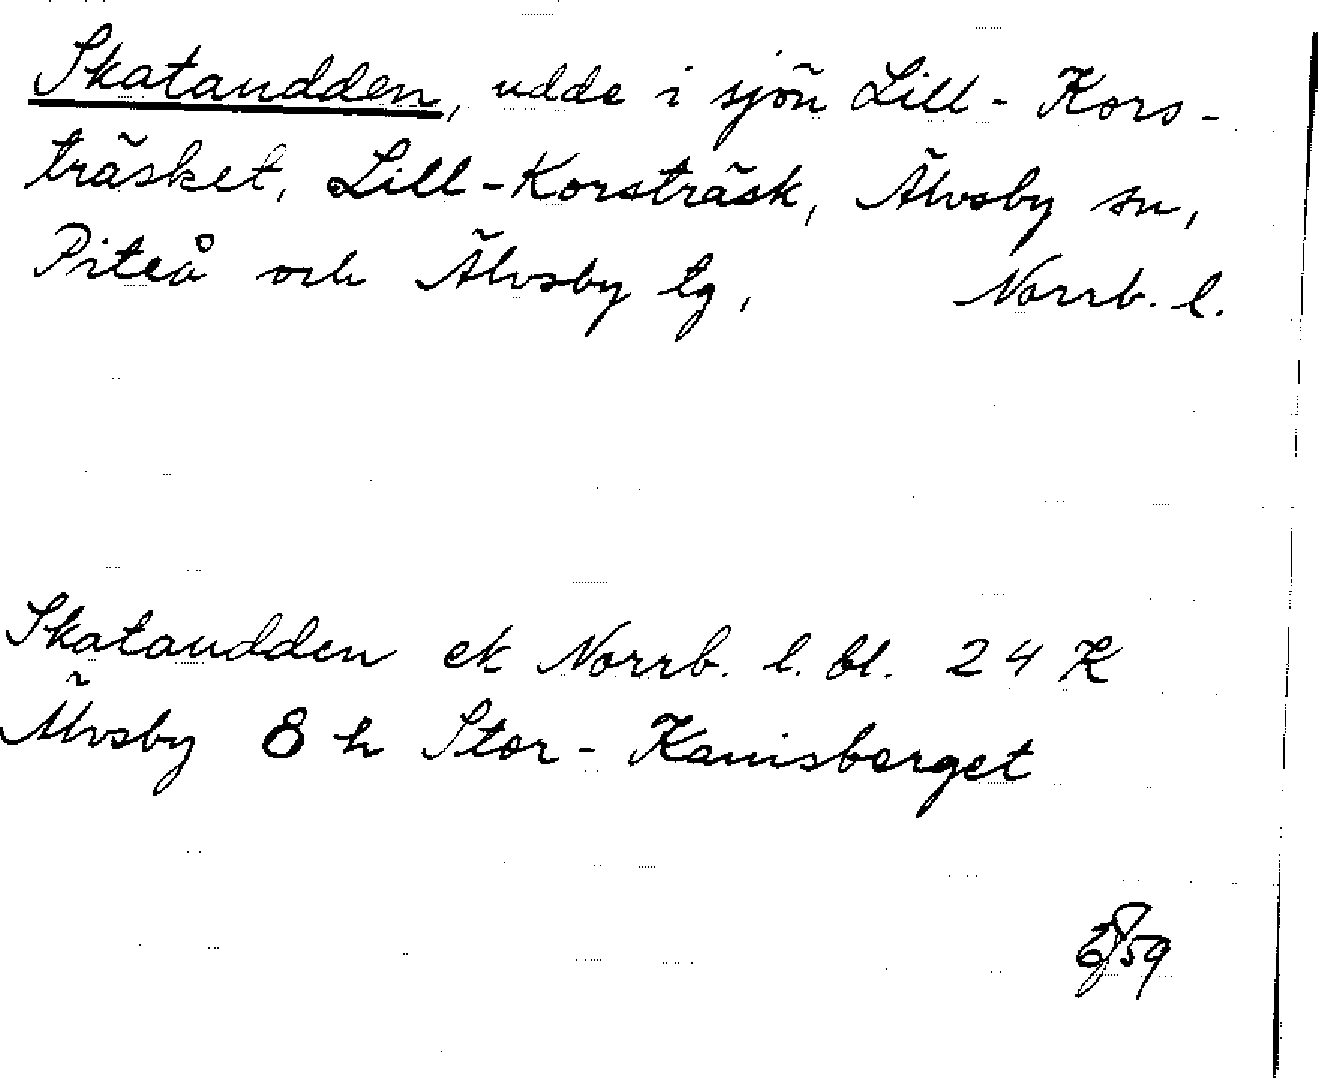 Skataudden, udde i sjön Lill-Kors-
träsket, Lill-Korsträsk, Älvsby sn,
Piteå och Älvsby tg, Norrb. l.
Skataudden ek Norrb. l. bl. 24 K
Älvsby 8 h Stor-Kanisberget
59